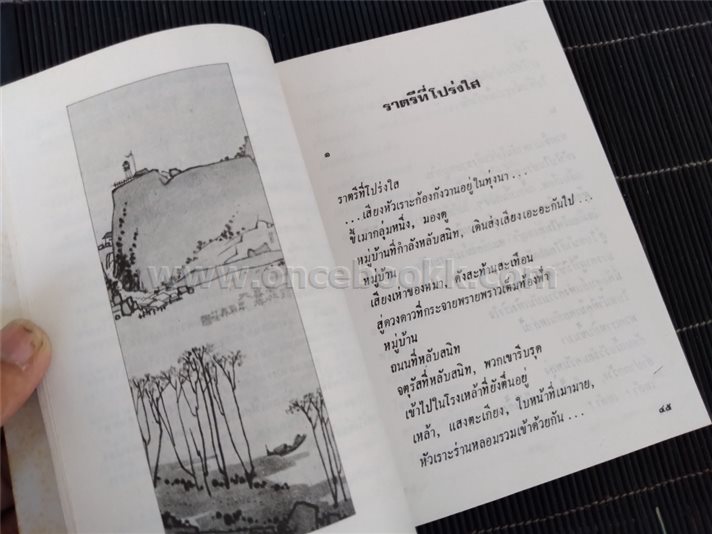 ราตรีที่โปร่งใส
๑
ราตรีที่โปร่งใส
...เสียงหัวเราะก้องกังวานอยู่ในทุ่งนา...
ขี้เมากลุ่มหนึ่ง, มองดู
หมู่บ้านที่กำลังหลับสนิท, เดินส่งเสียงเอะอะกันไป...
หมู่บ้าน
เสียงเห่าของหมา, ดังสะท้านสะเทือน
สู่ดวงดาวที่กระจายพรายพราวเต็มท้องฟ้า
หมู่บ้าน
ถนนที่หลับสนิท
จตุรัสที่หลับสนิท, พวกเขารีบรุด
เข้าไปในโรงเหล้าที่ยังตื่นอยู่
เหล้า, แสงตะเกียง, ใบหน้าที่เมามาย,
หัวเราะร่านหลอมรวมเข้าด้วยกัน...
๔๕
www.oncebookk.com